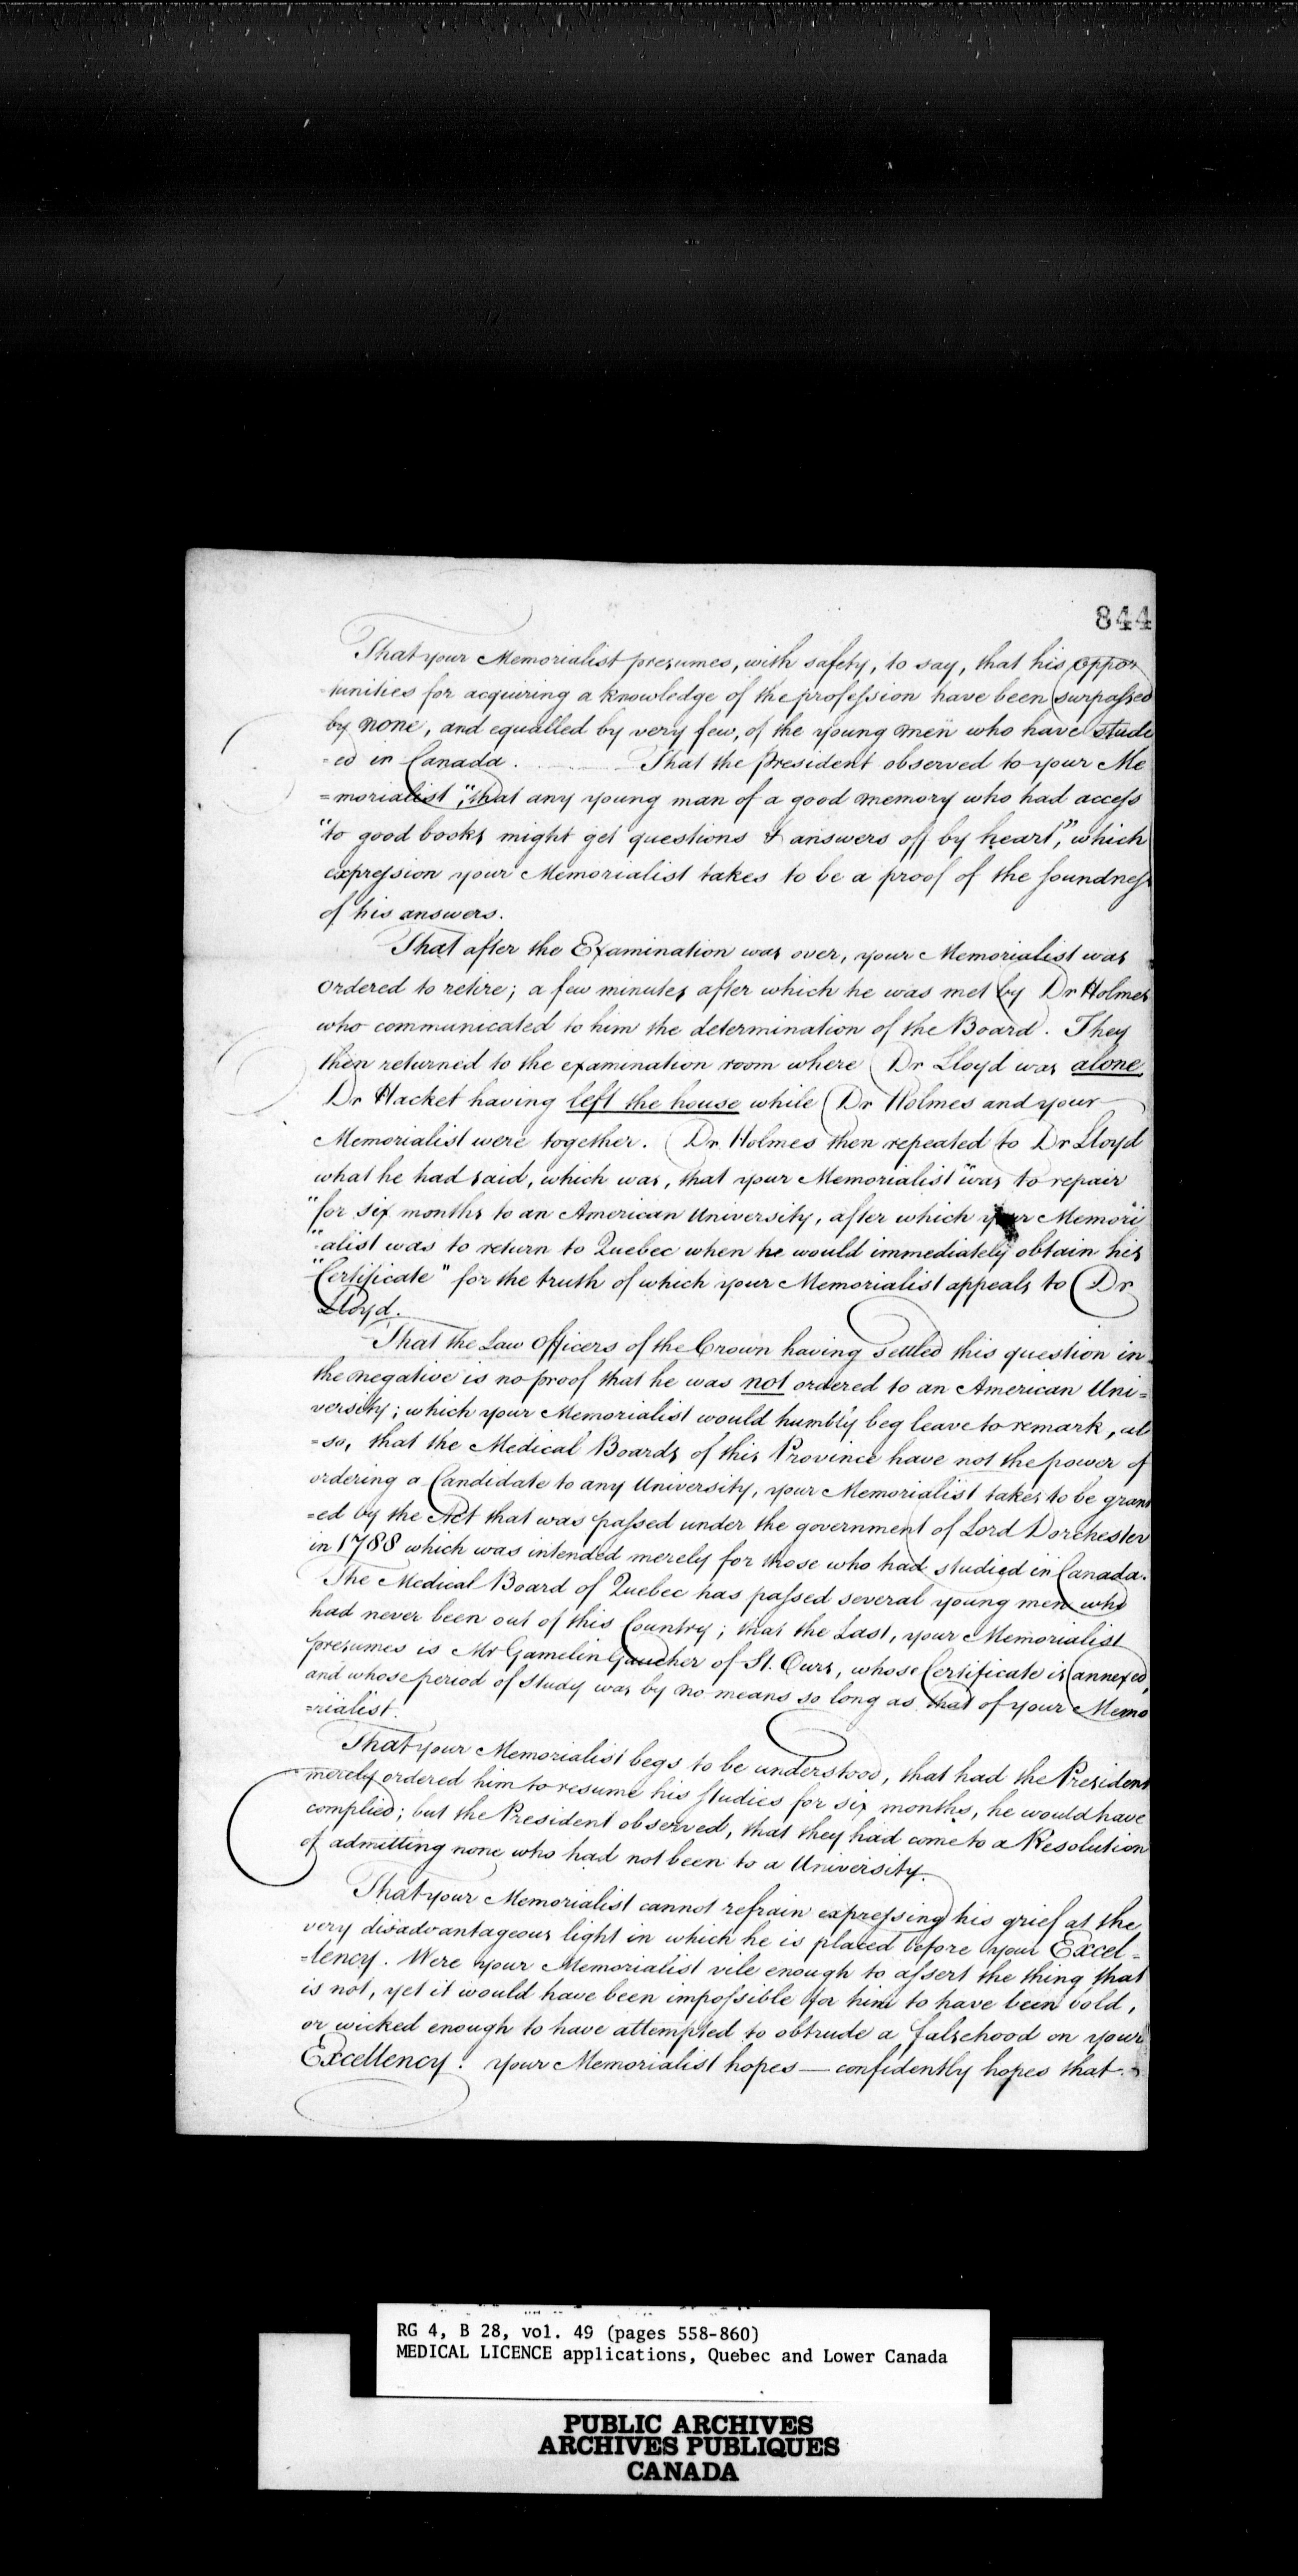 844
That your Memorialist presumes, with safety, to say, that his oppor
-tunities for acquiring a knowledge of the profession have been surpassed
by none, and equalled by very few, of the young men who have studi
-ed in Canada. That the President observed to your Me
=morialist, "that any young man of a good memory who had access
"to good books might get questions & answers off by heart," which
expression your Memorialist takes to be a proof of the soundness
of his answers.
That after the Examination was over, your Memorialist was
ordered to retire; a few minutes after which he was met by Dr Holmes
who communicated to him the determination of the Board. They
then returned to the examination room where Dr Lloyd was alone,
Dr Hacket having left the house while Dr Holmes and your
Memorialist were together. Dr Holmes then repeated to Dr Lloyd
what he had said, which was, that your Memorialist "was to repair
"for six months to an American University, after which your Memori
"-alist was to return to Quebec when he would immediately obtain his
"Certificate" for the truth of which your Memorialist appeals to Dr
Lloyd.
That the Law Officers of the Crown having settled this question in
the negative is no proof that he was not ordered to an American Uni=
versity; which your Memorialist would humbly beg leave to remark, al
-so, that the Medical Boards of this Province have not the power of
ordering a Candidate to any University, your Memorialist takes to be grant
=ed by the Act that was passed under the government of Lord Dorchester
in 1788 which was intended merely for those who had studied in Canada.
The Medical Board of Quebec has passed several young men who
had never been out of this Country; that the Last, your Memorialist
presumes is Mr Gamelin Gaucher of St. Ours, whose Certificate is annexed,
and whose period of Study was by no means so long as that of your Memo
=rialist.
That your Memorialist begs to be understood, that had the President
merely ordered him to resume his Studies for six months, he would have
complied; but the President observed, that they had come to a Resolution
of admitting none who had not been to a University.
That your Memorialist cannot refrain expressing his grief at the
very disadvantageous light in which he is placed before your Excel-
=lency. Were your Memorialist vile enough to assert the thing that
is not, yet it would have been impossible for him to have been bold,
or wicked enough to have attempted to obtrude a falsehood on your
Excellency: your Memorialist hopes — confidently hopes that
RG 4, B 28, vol. 49 (pages 558-860)
MEDICAL LICENCE applications, Quebec and Lower Canada
PUBLIC ARCHIVES
ARCHIVES PUBLIQUES
CANADA